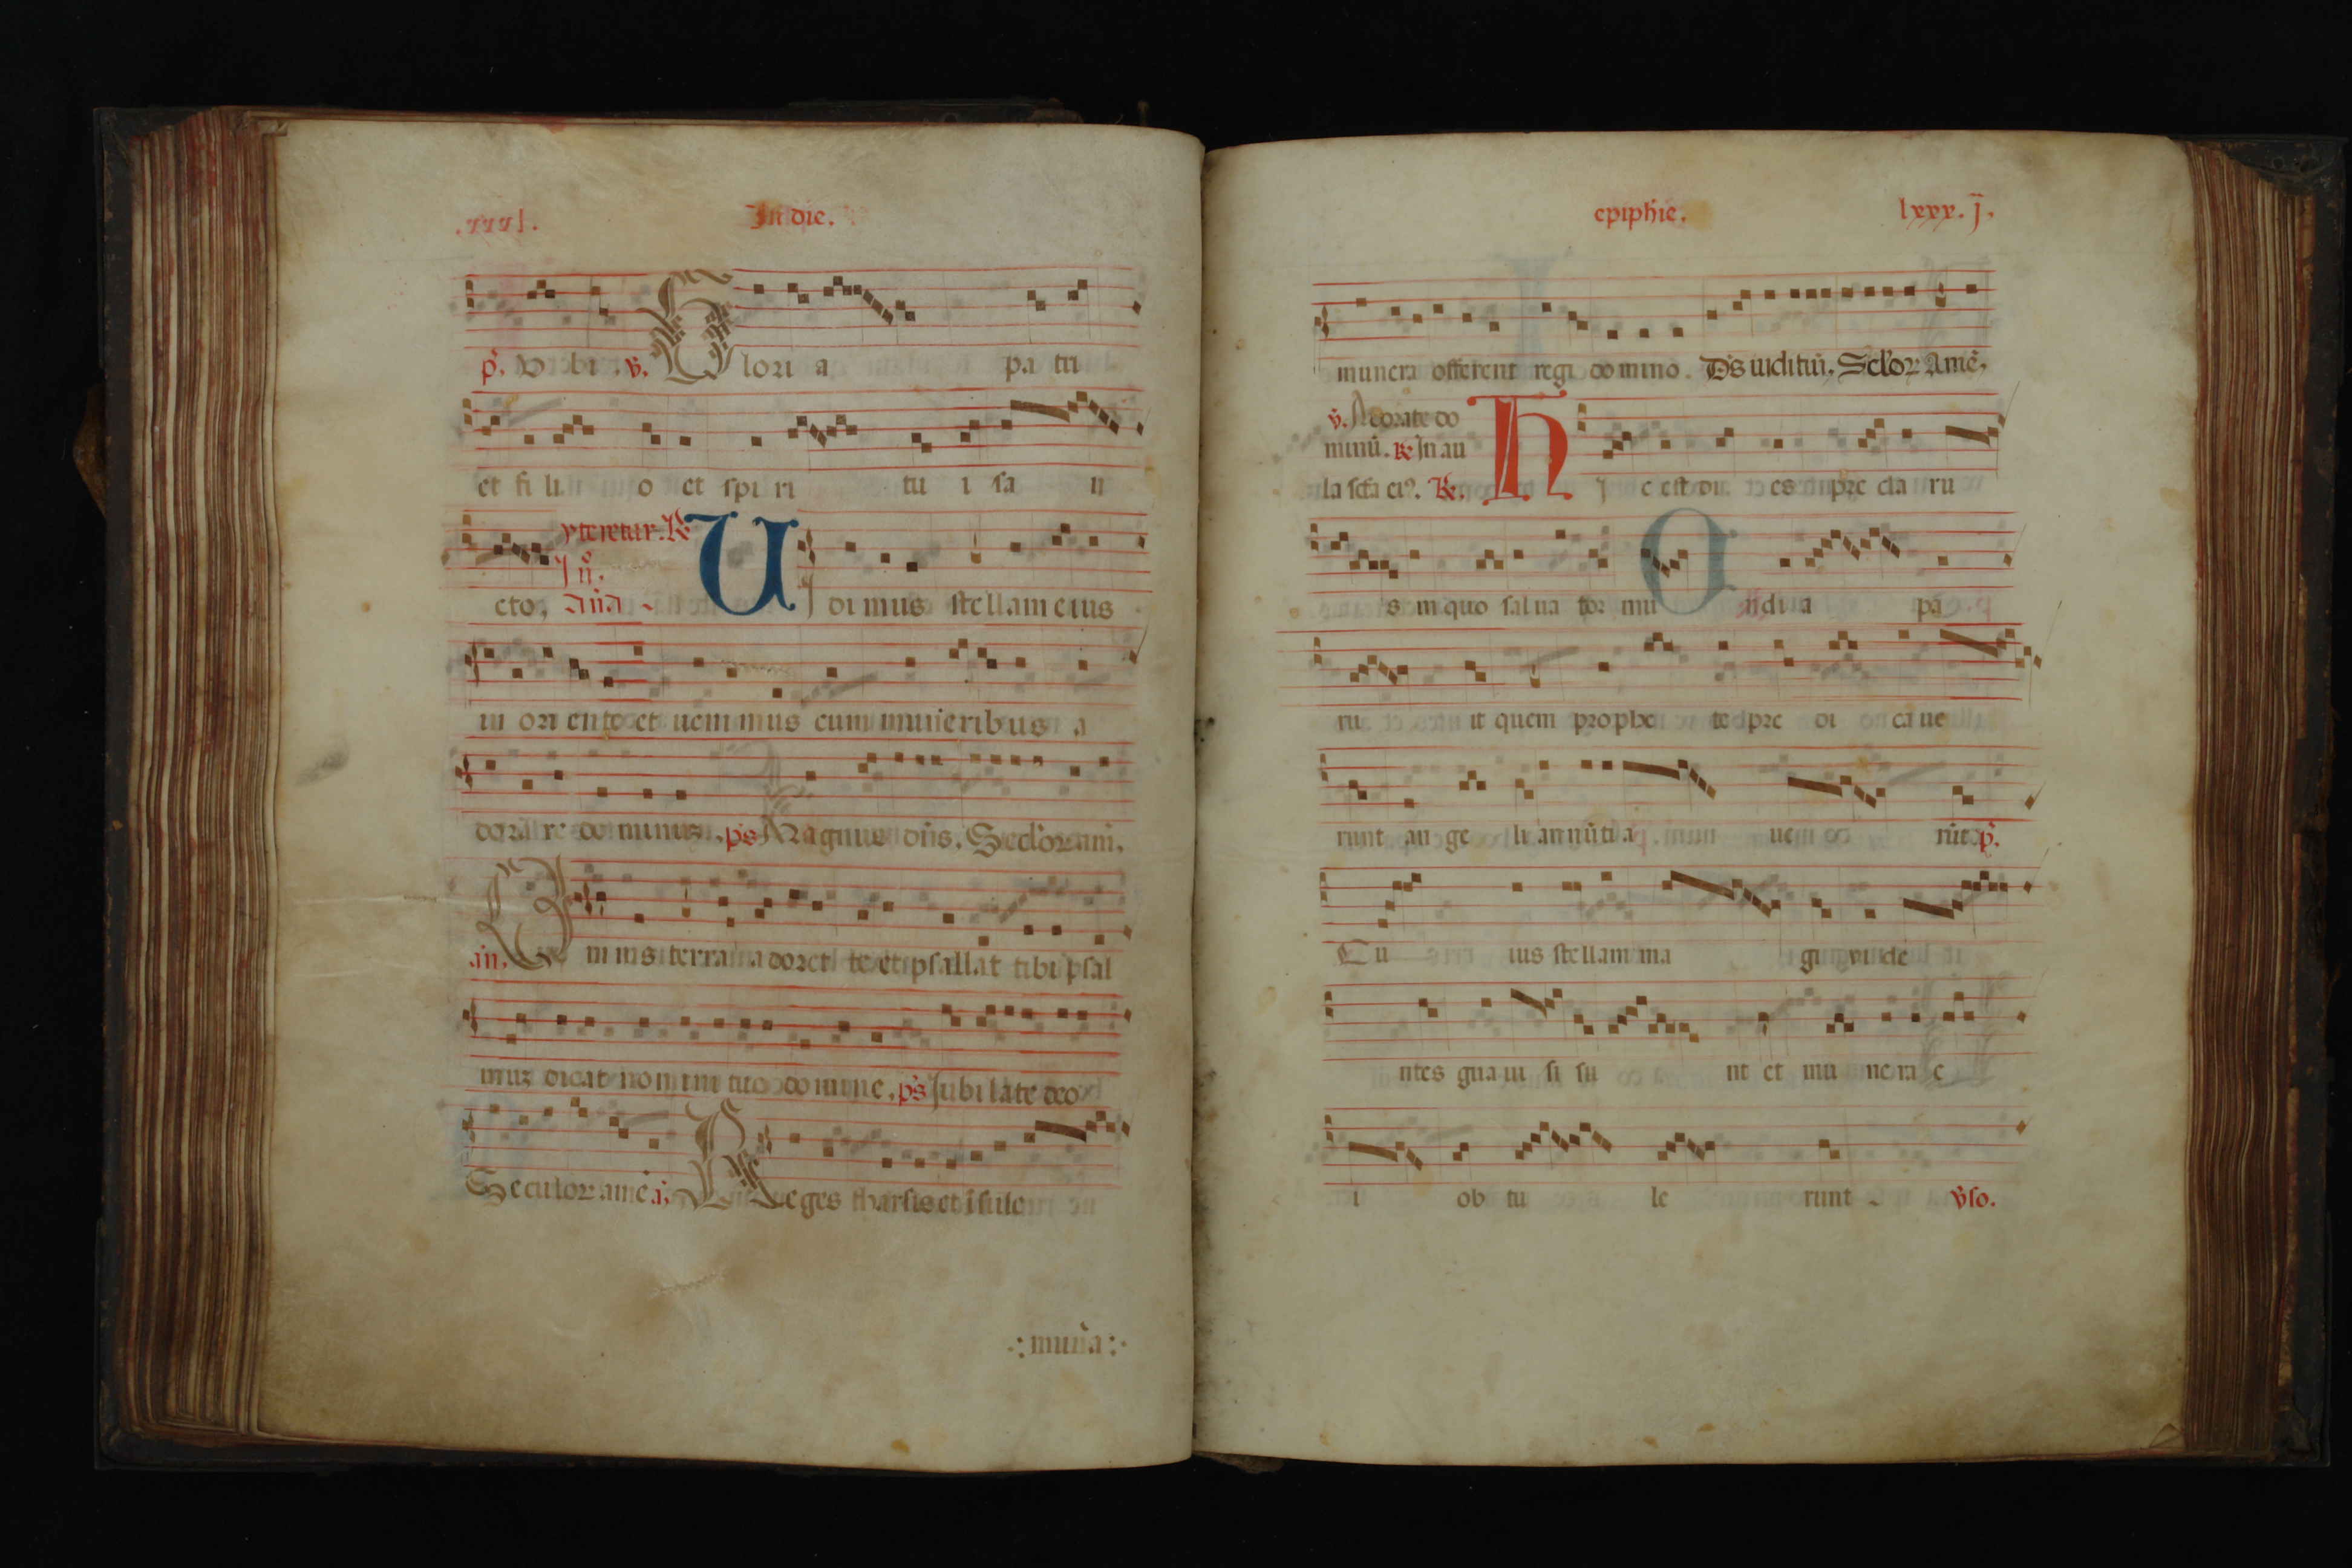 In die.
p̄. Vbi. v̄. Glori a pa tri
et fi li o et spi ri tu i sa n
cto,
Vidimus stellam eius
in ori ente et uenimus cum muneribus a
dora re dominuz. ps̄ Magnus dn̄s. Secloram̄.
an̄. Omnis terra adoret te et psallat tibi psal
muz dicat nomini tuo domine. ps̄ Jubilate deo
Seculor amē. ā. Reges tharsis et īsule
.:mun̄a:.
epiphīe. lxxx.j̄.
munera offerent regi domino. Ds̄ iudiciū. Sclor Amē.
v̄. Adorate do
minū. R̄ In au
la scā eiꝰ. R̄. Hic est di es pre cla ru
s in quo salua tor mu ndi a pa
ru it quem prophe te pre di caue
runt an ge li
Cu ius stellam ma gi uide
ntes gauisi su nt et mu nera e
i ob tu le runt v̄so.